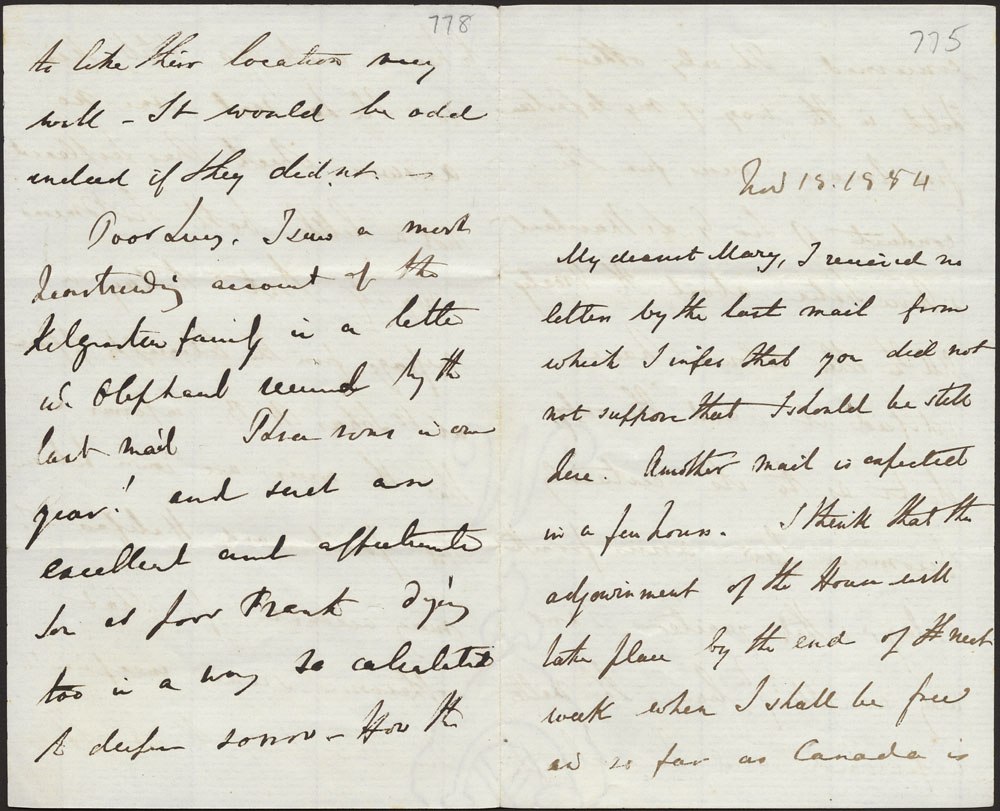 778
to like their location very
well - It would be odd
indeed if they did not. -
Poor Lucy. I saw a most
heartrending account of the
Kilgraston family in a letter
Oliphant received by the
last mail Three sons in one
year! and such an
excellent and affectionate
son as poor Frank dying
too in a way so calculated
to deepen sorrow - How the
775
Nov 18. 1854
My dearest Mary, I received no
letter by the last mail from
which I infer that you did not
not suppose that I should be still
here. Another mail is expected
in a few hours. I think that the
adjournment of the House will
take place by the end of the next
week when I shall be free
in so far as Canada is